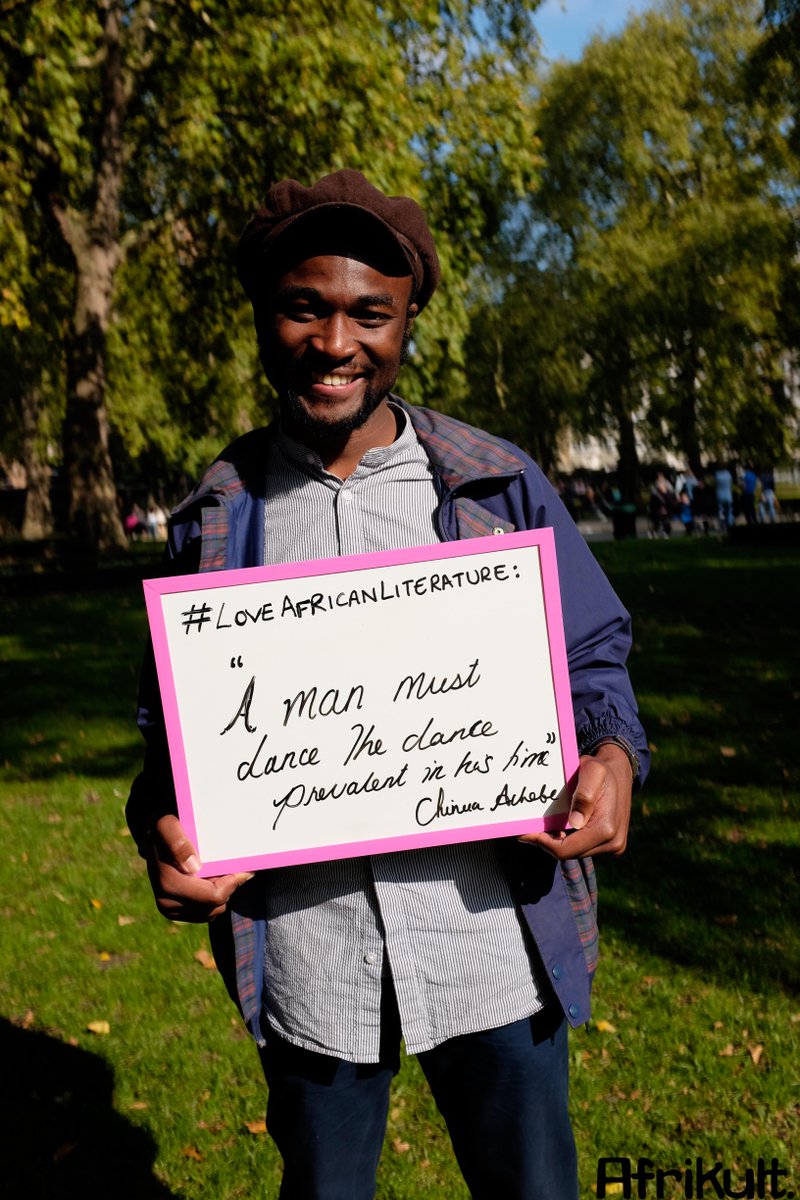 #LOVEAFRICANLITERATURE:
"A man must
dance The dance
prevalent in his time"
Chinua Achebe
Afrikult